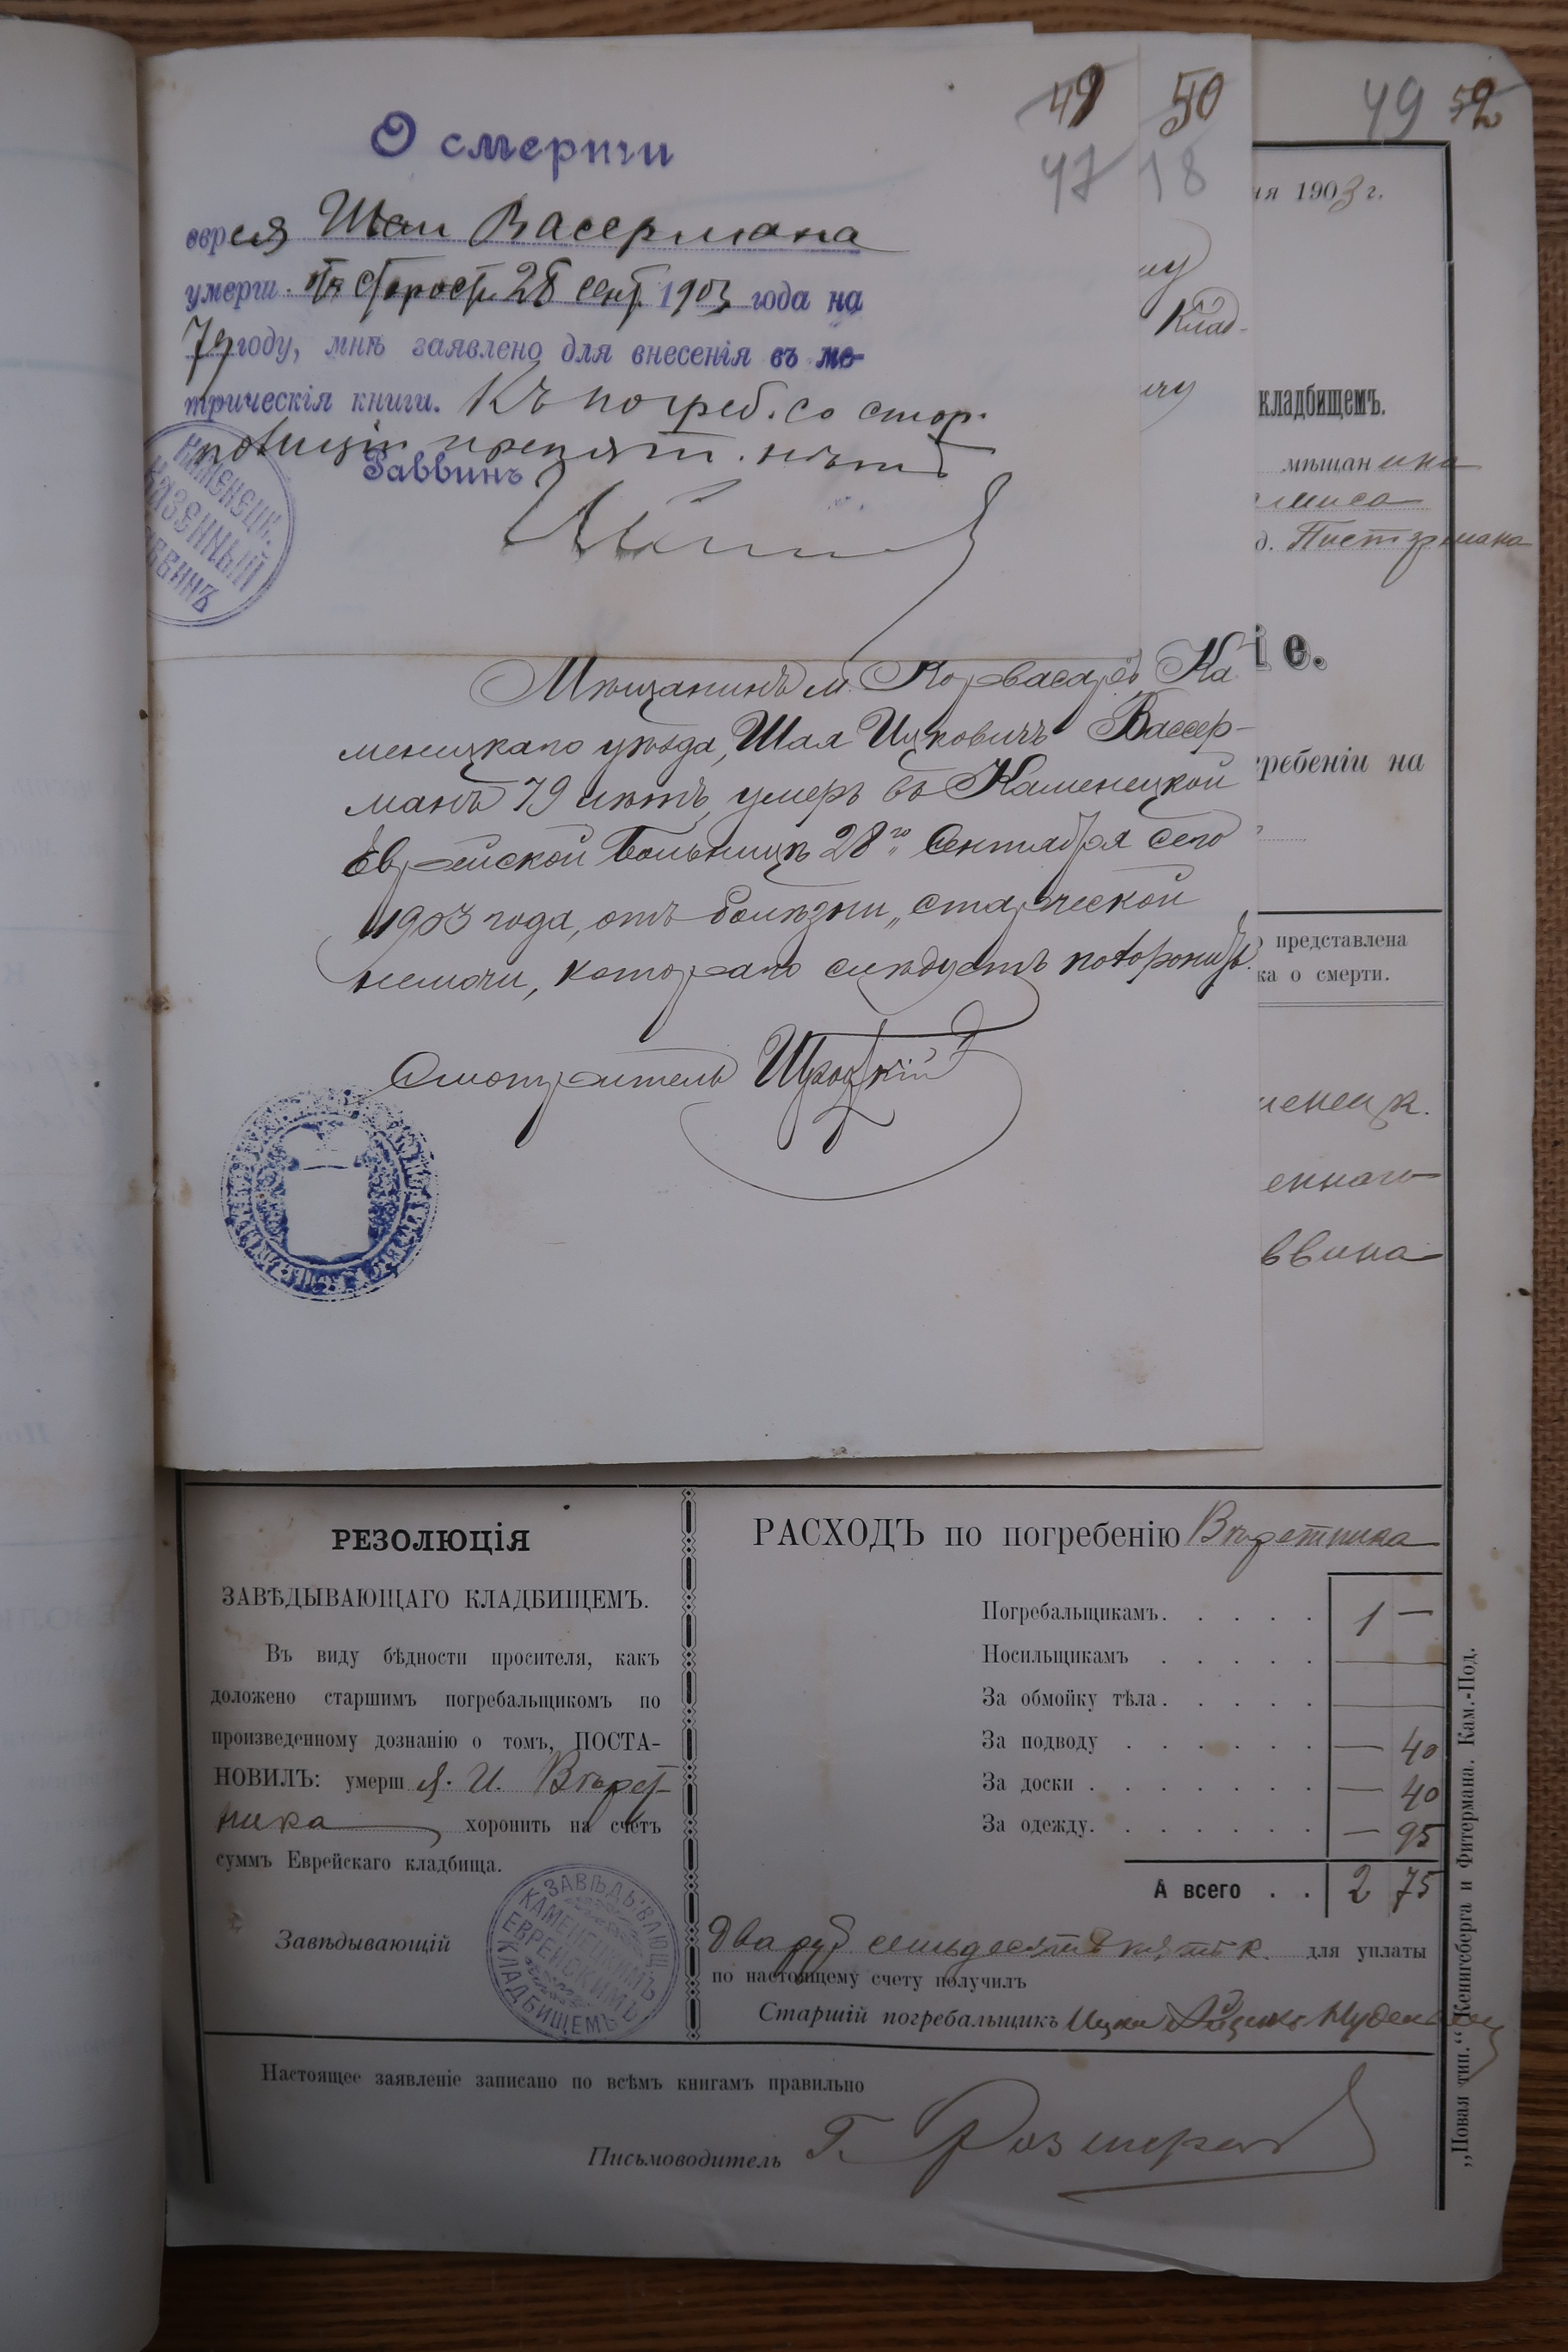 49
47
О смерти
еврея Шаи Васермана
умерш. отъ старости 28 сент. 1903 года на
79 году, мнѣ заявлено для внесенія въ ме-
трическія книги. Къ погреб. со стор.
полиціи препят. нѣтъ
Раввинъ
КАМЕНЕЦК.
КАЗЕННЫЙ
РАВВИНЪ
50
48
Клад-
Мѣщанинъ м. Корвасары Ка
менецкаго уѣзда, Шая Ицковичъ Вассер-
манъ 79 лѣтъ, умеръ въ Каменецкой
Еврейской больницѣ 28го Сентября сего
1903 года, отъ болѣзни „старческой
немочи, котораго слѣдуетъ похоронить.
Смотритель
49 52
ія 1903 г.
кладбищемъ.
мѣщанина
д.
іе.
гребеніи на
представлена
ка о смерти.
менецк.
еннаго
ввина
РЕЗОЛЮЦІЯ
ЗАВѢДЫВАЮЩАГО КЛАДБИЩЕМЪ.
Въ виду бѣдности просителя, какъ
доложено старшимъ погребальщикомъ по
произведенному дознанію о томъ, ПОСТА-
НОВИЛЪ: умерш И. Вѣрет
ника хоронить на счетъ
суммъ Еврейскаго кладбища.
Завѣдывающій
ЗАВѢДЫВЛЮЩ.
КАМЕНЕЦКИМЪ
ЕВРЕЙСКИМЪ
КЛАДБИЩЕМЪ
РАСХОДЪ по погребенію Вѣретника
Погребальщикамъ. . . . . 1 —
Носильщикамъ . . . . .
За обмойку тѣла. . . . .
За подводу . . . . . . — 40
За доски . . . . . . . — 40
За одежду. . . . . . . — 95
А всего . . 2 75
Два руб семьдесятъ пять к. для уплаты
по настоящему счету получилъ
Старшій погребальщикъ Ицко
Настоящее заявленіе записано по всѣмъ книгамъ правильно
Письмоводитель Г.
„Новая тип.“ Кенигсберга и Фитермана. Кам.-Под.